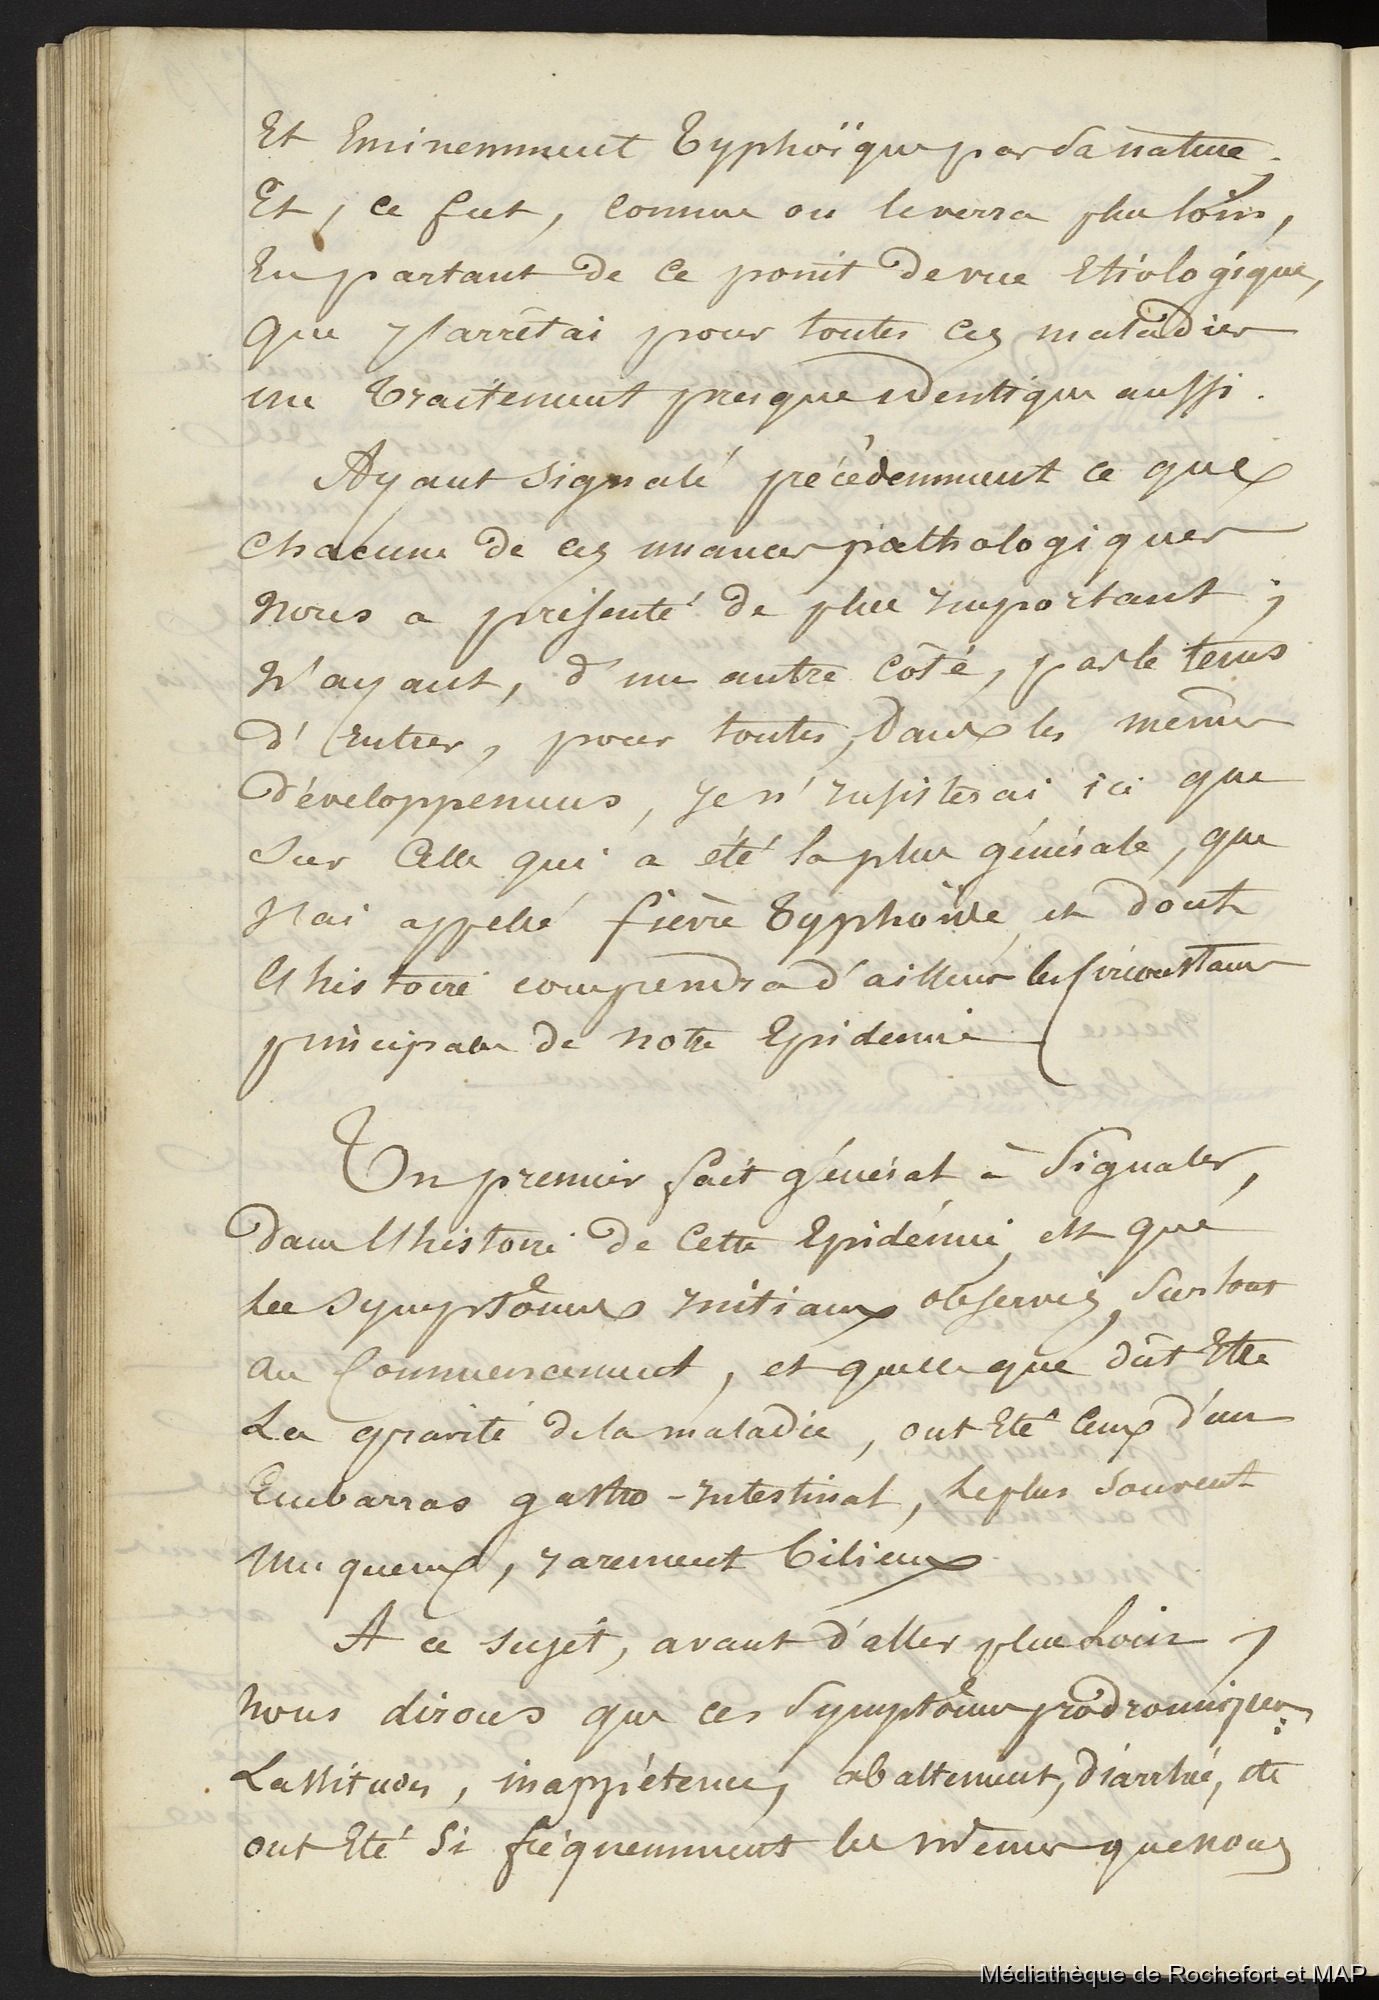 Et Eminemment Typhoïque par Sa nature,
Et, ce fut, comme on le verra plus loin,
En partant de Ce point de vue Etiologique,
que j'arrêtai pour toutes Ces maladies
un Traitement presque identique aussi.
Ayant signalé précédemment ce que
Chacune de ces nuances pathologiques
Nous a présenté de plus important;
N'ayant, d'un autre côté, pas le tems
d'Entrer, pour toutes, Dans les mêmes
développemens, je n'insisterai ici que
Sur Celle qui a été la plus générale, que
j'ai appellé fièvre Typhoïde et dont
l'histoire comprendra d'ailleurs les Circonstances
principales de notre Epidémie
Un premier fait général à Signaler,
Dans l'histoire de Cette Epidémie est que
les Symptômes initiaux observés, Surtout
au Commencement, et quelle que dût Etre
La gravité de la maladie, ont Eté Ceux d'un
Embarras gastro-intestinal, le plus Souvent
Muqueux, rarement bilieux
A ce sujet, avant d'aller plus Loin,
Nous dirons que ces Symptômes prodromiques:
Lassitudes, inappétence, abattement, diarrhée, etc
ont Eté Si fréquemment les mêmes que nous
Médiathèque de Rochefort et MAP